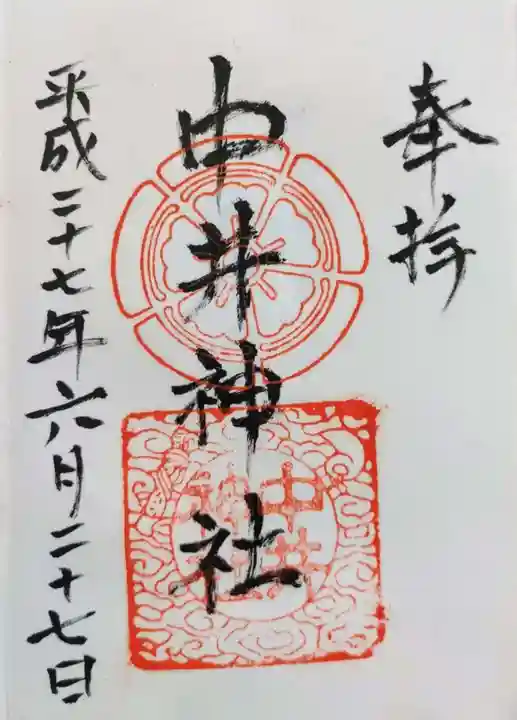 奉拝
中井神社
中井
神社
平成二十七年六月二十七日